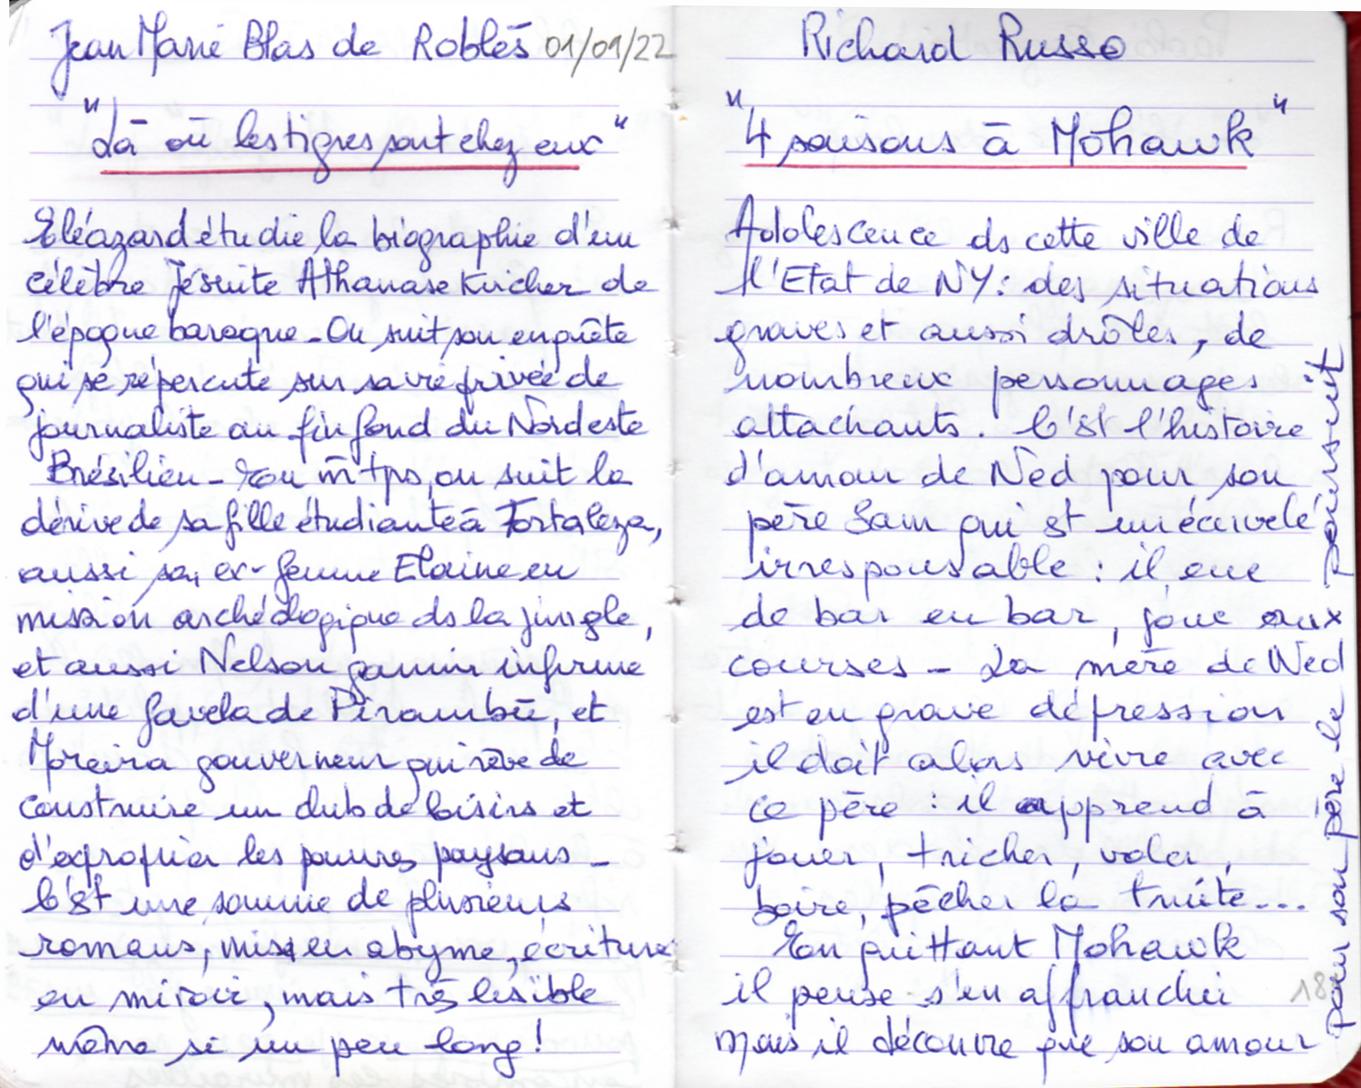 Jean Marie Blas de Roblès 01/01/22
"Là où les tigres sont chez eux"
Eléazard étudie la biographie d'un
célèbre Jésuite Athanase Kircher de
l'époque baroque - On suit son enquête
qui se répercute sur sa vie privée de
journaliste au fin fond du Nordeste
Brésilien - En m̄ tps, on suit la
dérive de sa fille étudiante à Fortaleza,
aussi sa, ex-femme Elaine en
mission archéologique ds la jungle,
et aussi Nelson gamin infirme
d'une favela de Pirambū, et
Moreira gouverneur qui rêve de
construire un club de loisirs et
d'exproprier les pauvres paysans -
C'st une somme de plusieurs
romans, mise en abyme, écriture
en miroir, mais très lisible
même si un peu long!
Richard Russo
"4 saisons à Mohawk"
Adolescence ds cette ville de
l'Etat de NY: des situations
graves et aussi drôles, de
nombreux personnages
attachants. C'st l'histoire
d'amour de Ned pour son
père Sam qui st un écervelé
irresponsable : il erre
de bar en bar, joue aux
courses - La mère de Ned
est en grave dépression
il doit alors vivre avec
ce père : il apprend à
jouer, tricher, voler,
boire, pêcher la truite...
En quittant Mohawk
il pense s'en affranchir
mais il découvre que son amour
pour son père le poursuit
18